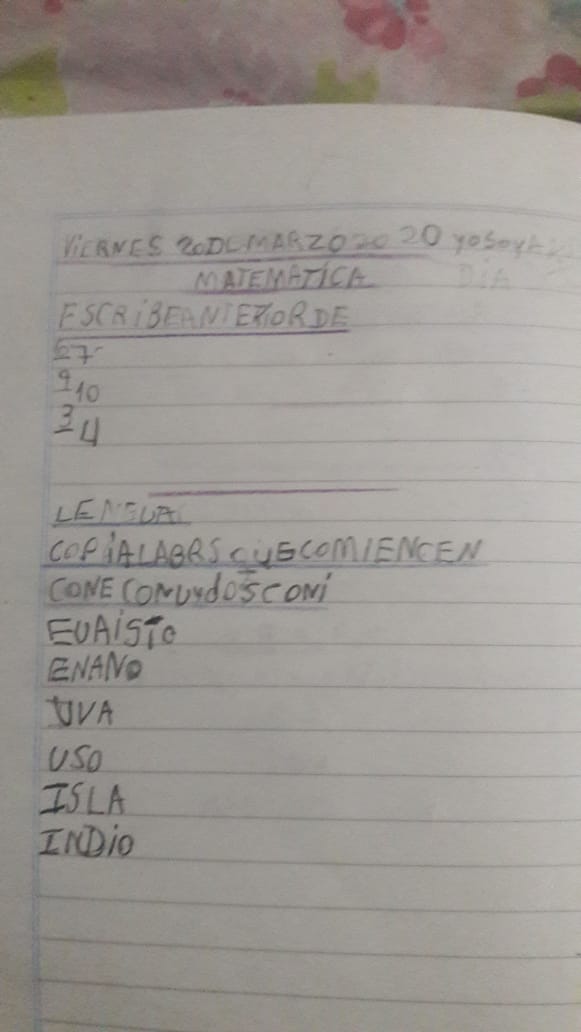 VIERNES 20DEMARZO2020 yosoy
MATEMATICA DIA
ESCRIBEANTERIORDE
67
910
34
LENGUA
COPIALABRSQUECOMIENCEN
CONECONUYdOSCONi
EUAiSTO
ENANO
UVA
USO
ISLA
INDIO